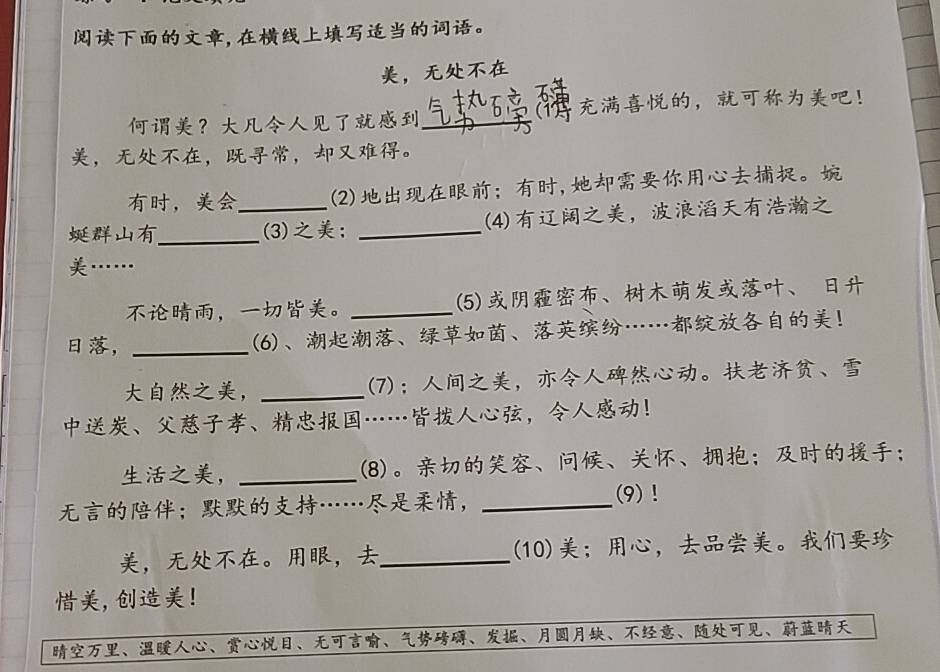 阅读下面的文章,在横线上填写适当的词语。
美，无处不在
何谓美？大凡令人见了就感到气势磅礴(1)充满喜悦的，就可称为美吧！
美，无处不在，既寻常，却又难得。
有时，美会________(2)地出现在眼前；有时,她却需要你用心去捕捉。婉
蜒群山有________(3)之美；________(4)有辽阔之美，波浪滔天有浩瀚之
美……
不论晴雨，一切皆美。________(5)或阴霾密布、树木萌发或落叶、日升
日落，________(6)、潮起潮落、绿草如茵、落英缤纷……都绽放各自的美！
大自然之美，________(7)；人间之美，亦令人砰然心动。扶老济贫、雪
中送炭、父慈子孝、精忠报国……皆拨人心弦，令人感动！
生活之美，________(8)。亲切的笑容、问候、关怀、拥抱；及时的援手；
无言的陪伴；默默的支持……尽是柔情，________(9)！
美，无处不在。用眼，去________(10)美；用心，去品尝美。我们要珍
惜美,创造美！
晴空万里、温暖人心、赏心悦目、无可言喻、气势磅礴、发掘、月圆月缺、不经意、随处可见、蔚蓝晴天